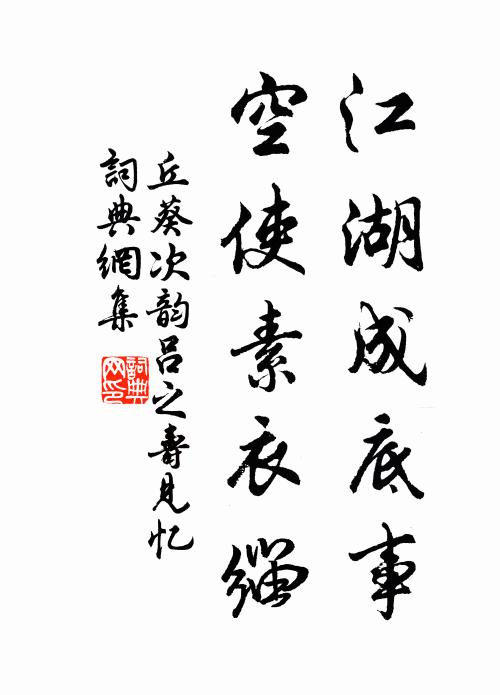 江湖成底事
空使素衣缁
丘葵次韵吕之壽見忆
詞典網集
詞典网印